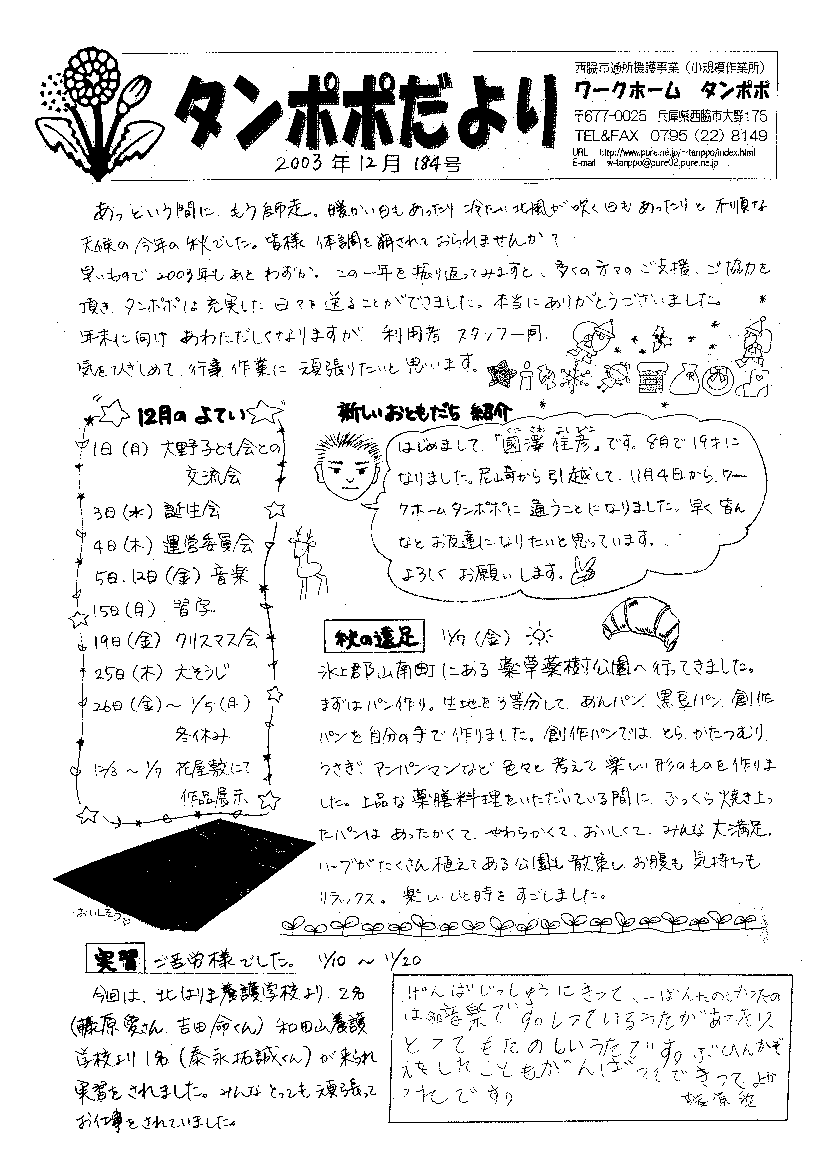 西脇市通所援護事業（小規模作業所）
ワークホーム　タンポポ
〒677-0025　兵庫県西脇市大野175
TEL&FAX　0795（22）8149
URL　http://www.pure.ne.jp/~tanppo/index.html
E-mail　w-tanppo@pure02.pure.ne.jp
タンポポだより
2003年12月 184号
あっという間に、もう師走。暖かい日もあったり 冷たい北風が吹く日もあったりと 不順な
天候の今年の秋でした。皆様 体調を崩されておられませんか？
早いもので 2003年もあと わずか。この一年を振り返ってみますと、多くの方々のご支援、ご協力を
頂き、タンポポは充実した日々を送ることができました。本当にありがとうございました。
年末に向け あわただしくなりますが、利用者 スタッフ一同、
気をひきしめて、行事、作業に 頑張りたいと思います。
12月のよてい
1日（月）大野子ども会との
交流会
3日（水）誕生会
4日（木）運営委員会
5日、12日（金）音楽
15日（月）習字
19日（金）クリスマス会
25日（木）大そうじ
26日（金）～ 1/5（月）
冬休み
12/3 ～ 1/7 花屋敷にて
作品展示
新しいおともだち 紹介
はじめまして、「國澤佳彦」です。8月で19才に
なりました。尼崎から引越して、11月4日から、ワー
クホームタンポポに通うことになりました。早く皆ん
なとお友達になりたいと思っています。
よろしくお願いします。
秋の遠足 11/7（金）
氷上郡山南町にある薬草薬樹公園へ行ってきました。
まずはパン作り。生地を3等分して、あんパン、黒豆パン、創作
パンを自分の手で作りました。創作パンでは、とら、かたつむり、
うさぎ、アンパンマンなど 色々と考えて楽しい形のものを作りま
した。上品な薬膳料理をいただいている間に、ふっくら焼き上っ
たパンは あったかくて、やわらかくて、おいしくて、みんな大満足。
ハーブがたくさん植えてある公園も散策し、お腹も気持ちも
リラックス。楽しいひと時をすごしました。
おいしそう
実習 ご苦労様でした。 11/10 ～ 11/20
今回は、北はりま養護学校より、2名
（藤原愛さん、吉田命くん）和田山養護
学校より1名（泰永拓誠くん）が来られ
実習をされました。みんなとっても頑張って
お仕事をされていました。
げんばじっしゅうにきって、いちばんたのしかったの
は音楽です。しっているうたがあったり
とってもたのしいうたです。ぶひんかぞ
えをしたこともがんばってできってよか
ったです。